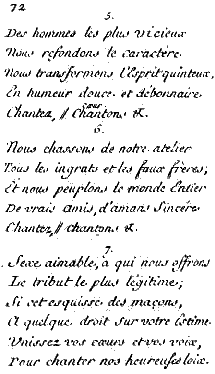 72
5.
Des hommes les plus vicieux
Nous refondons le caractère
Nous transformons l'Esprit quinteux,
En humeur douce et débonnaire
pour
Chantez, // Chantons &.
6.
Nous chassons de notre atelier
Tous les ingrats et les faux frères;
Et nous peuplons le monde Entier
De vrais amis, d'amans Sincére
Chantez, // chantons &.
7.
Sexe aimable, à qui nous offrons
Le tribut le plus légitime;
Si cet esquisse des maçons,
A quelque droit sur votre Estime
Unissez vos cœurs et vos voix,
Pour chanter nos heureuses loix.